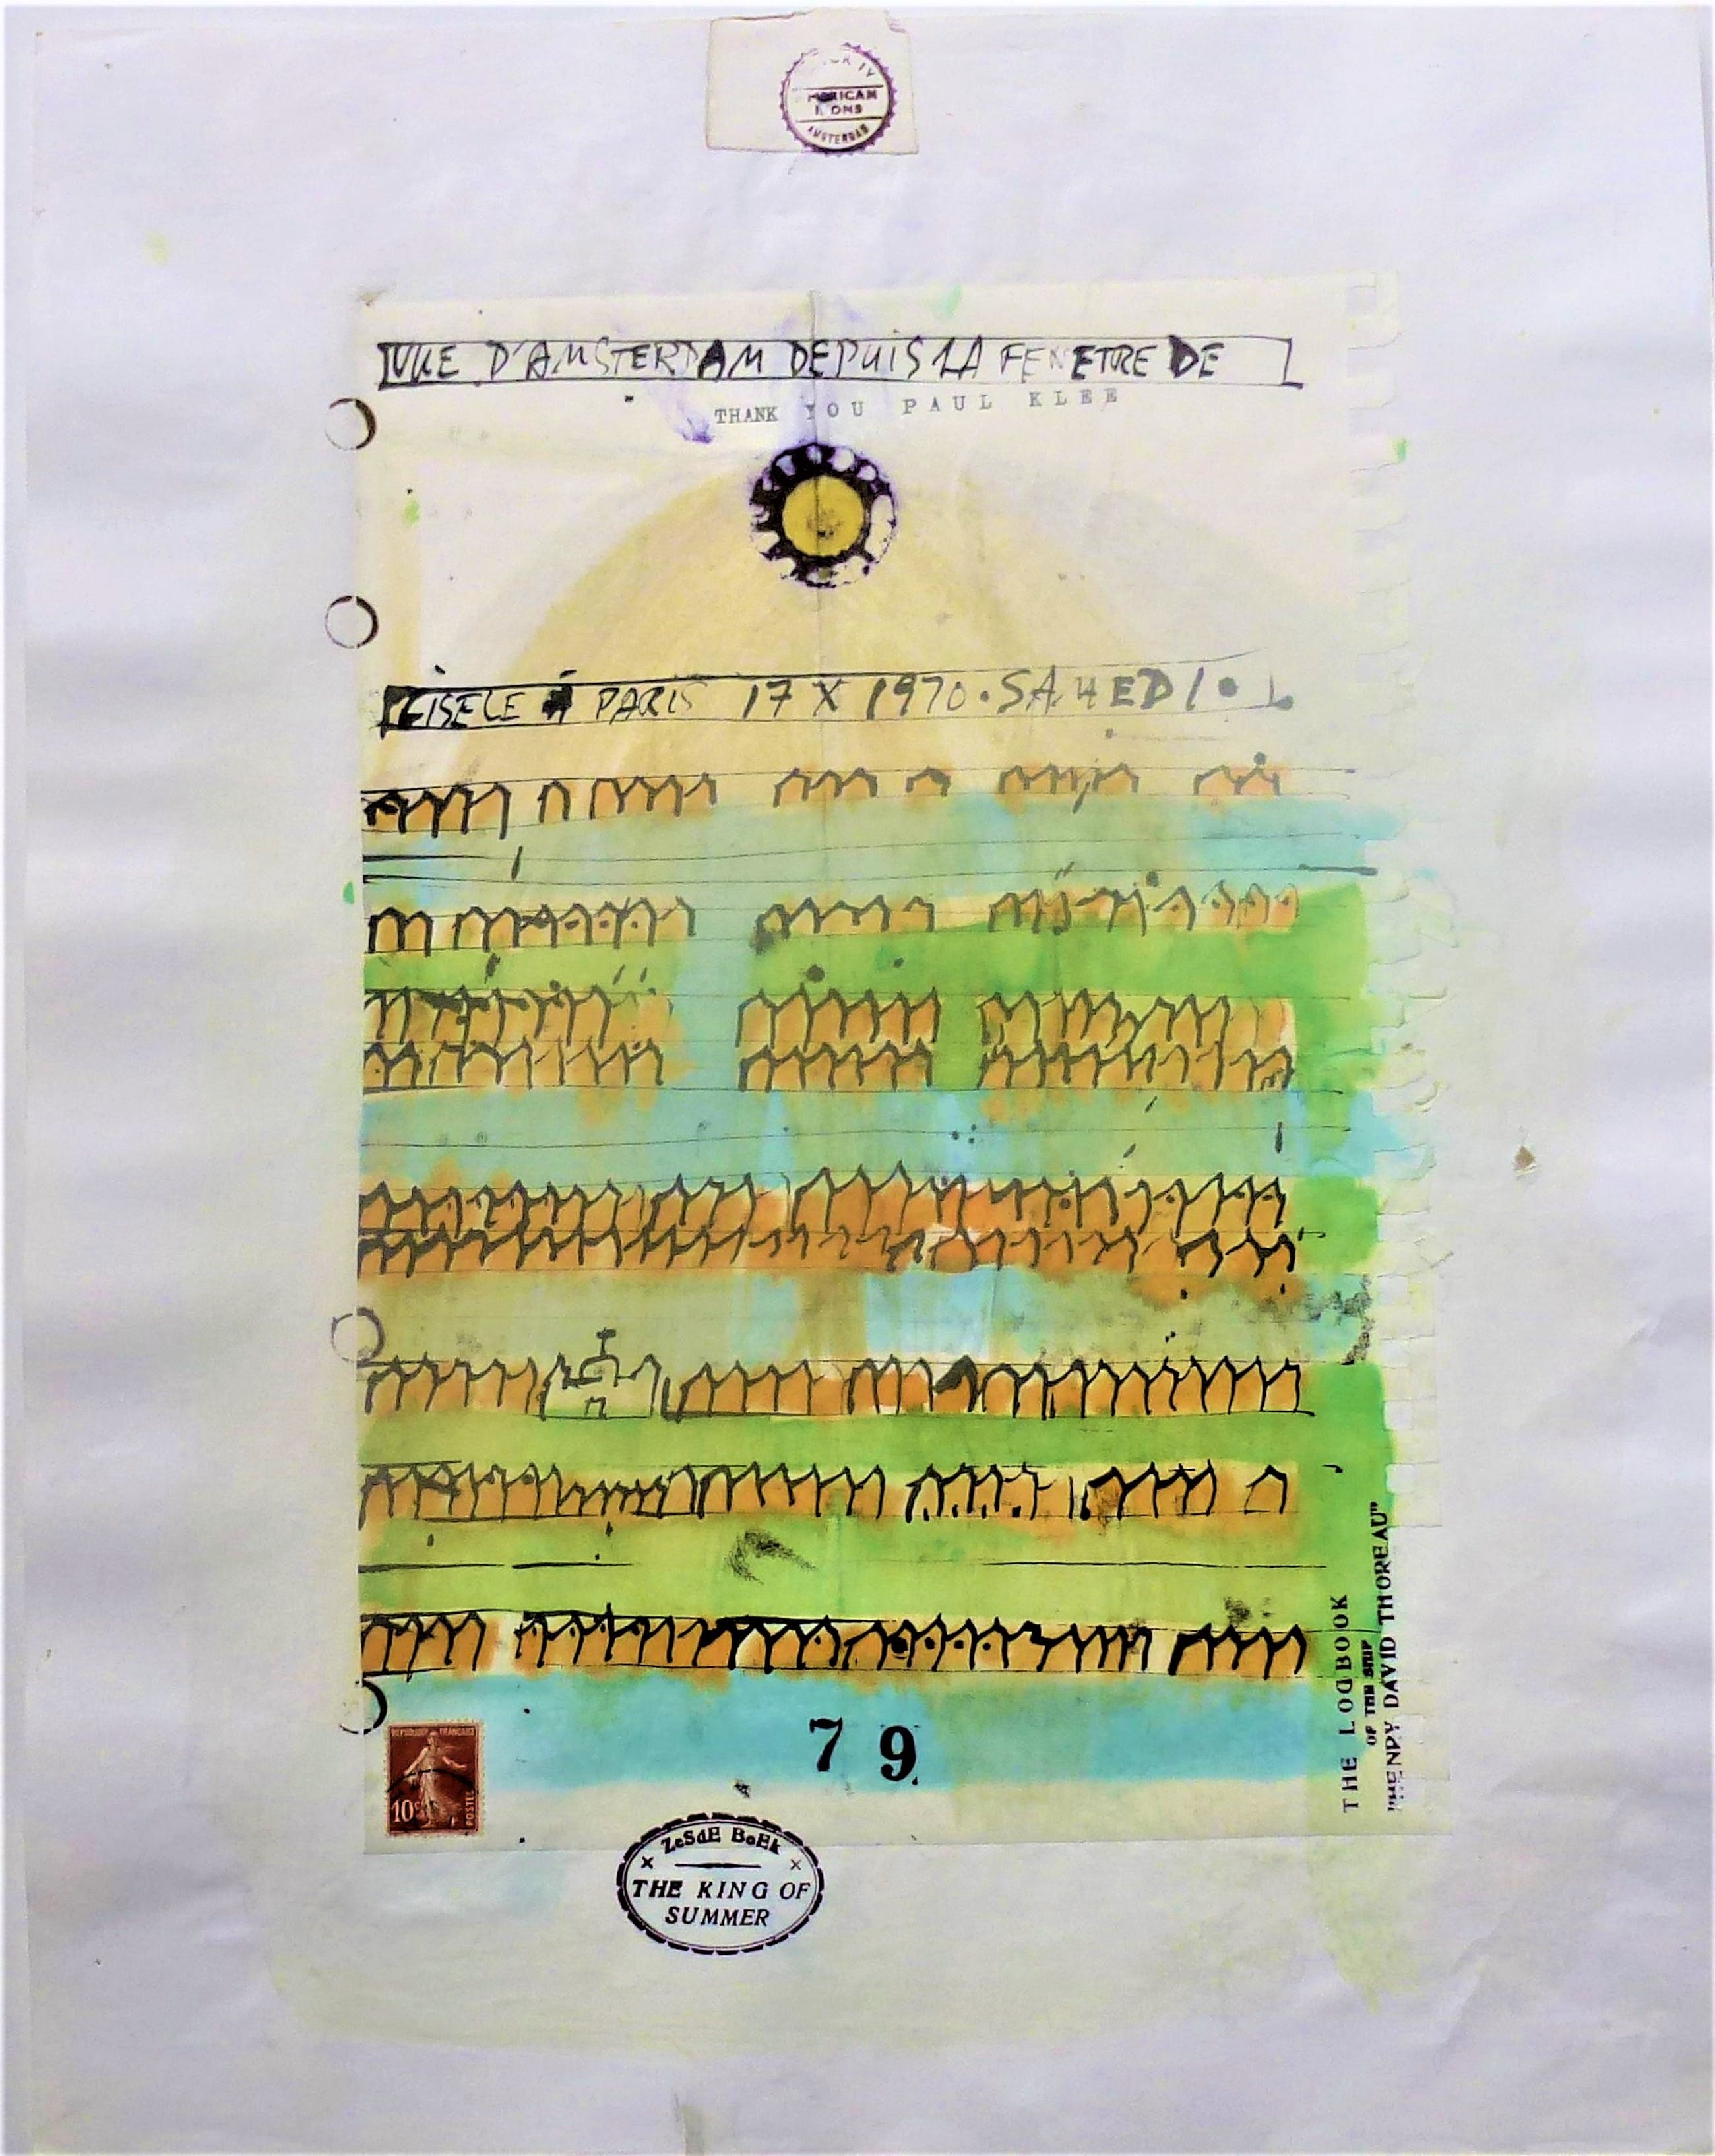 AMSTERDAM
VUE D'AMSTERDAM DEPUIS LA FENETRE DE
THANK YOU PAUL KLEE
PARIS 17 X 1970. SAMEDI.
REPUBLIQUE FRANÇAISE
10c
POSTES
79
THE LOGBOOK
OF THE SHIP
"HENRY DAVID THOREAU"
ZeSdE BoEk
THE KING OF
SUMMER